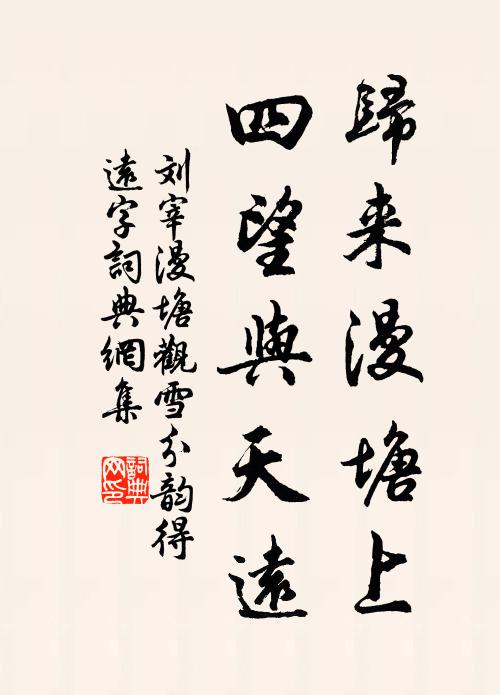 歸来漫塘上
四望與天遠
刘宰漫塘觀雪分韵得
遠字詞典網集
詞典
网印